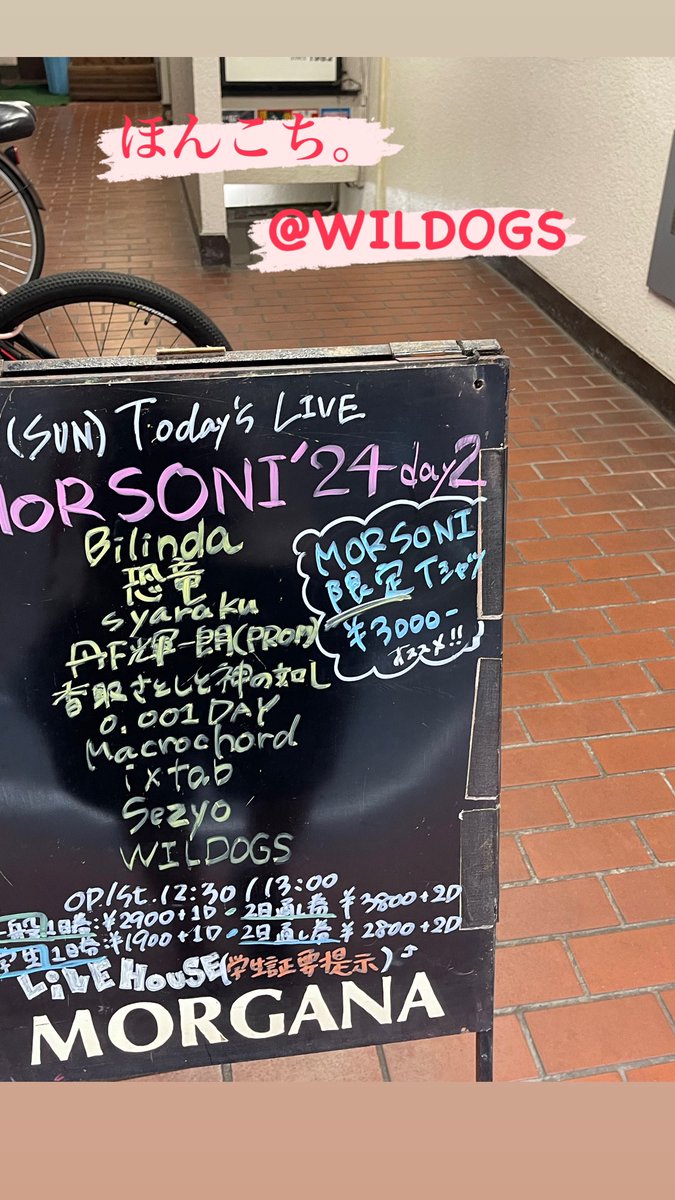 ほんこち。
@WILDOGS
(SUN) Today's LIVE
MORSONI'24 day2
Bilinda
恐竜
syaraku
丹下輝一朗(PROM)
香取さとしと神の如し
0.001DAY
Macrochord
ixtab
Sezyo
WILDOGS
MORSONI
限定Tシャツ
¥3000-
オススメ!!
OP/St.12:30/13:00
一般1日券:¥2900+1D・2日通し券 ¥3800+2D
学生1日券:¥1900+1D・2日通し券 ¥2800+2D
LIVE HOUSE(学生証要提示)
MORGANA